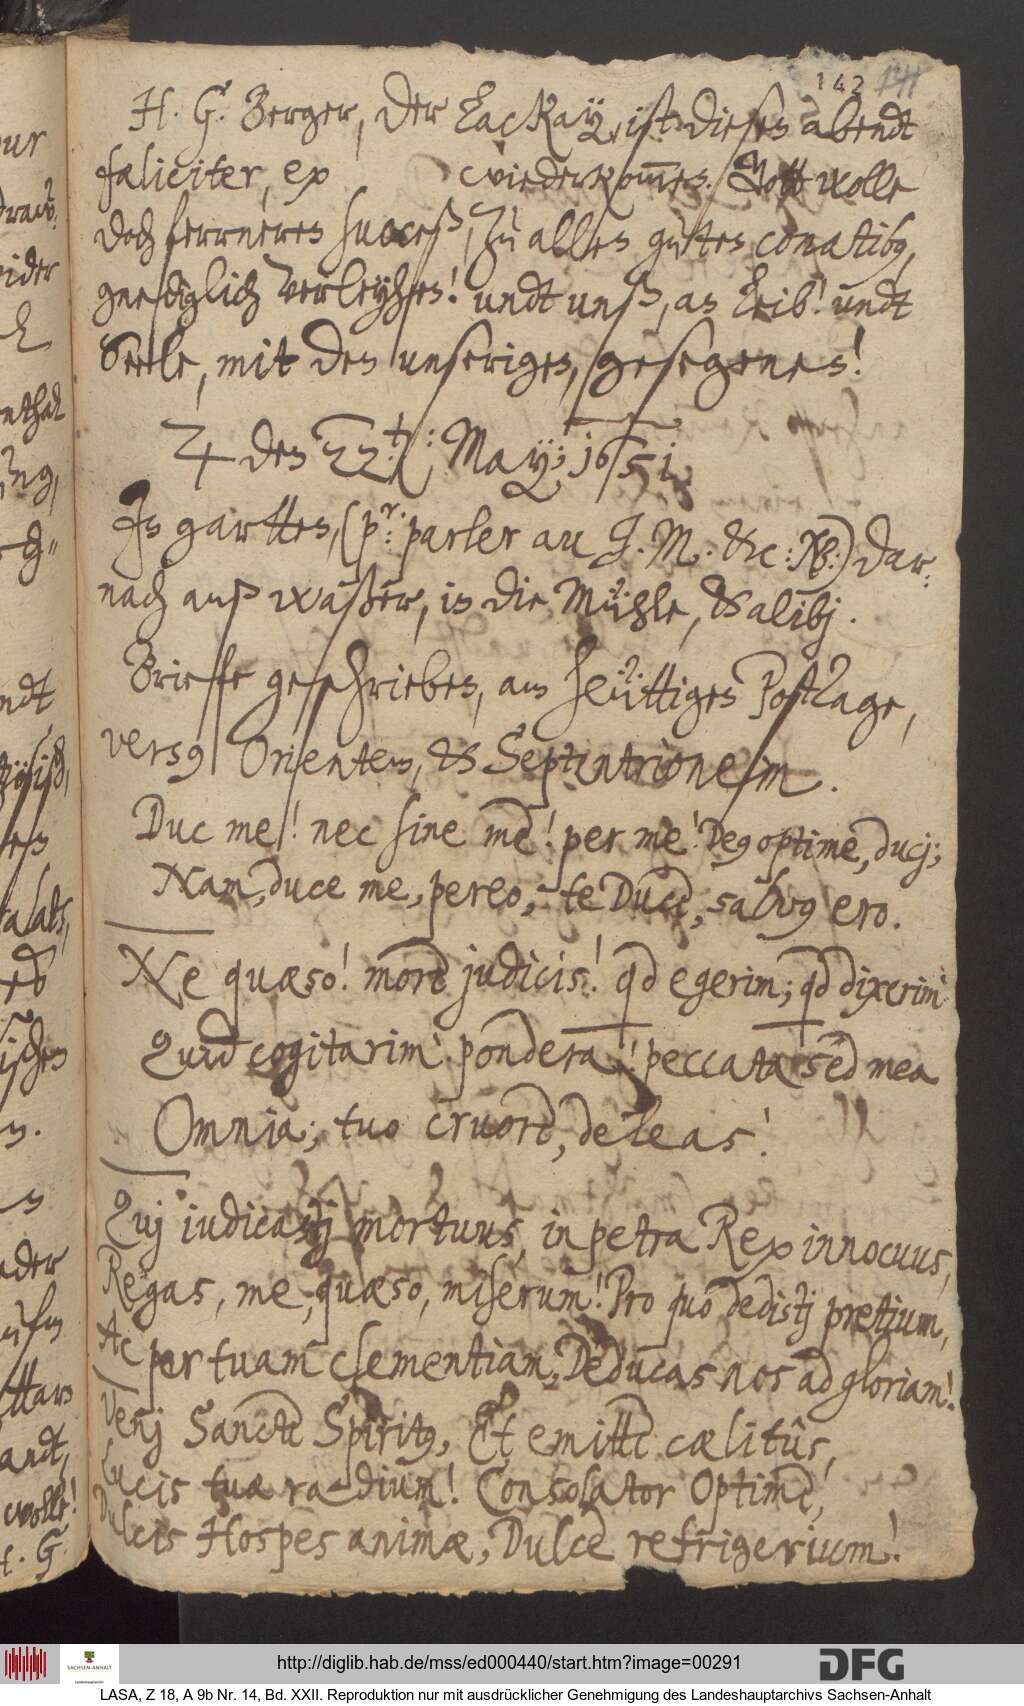 142 141
H. G. Berger, der Lackay, ist diesen abendt
fæliciter, ex wiederkommen. Gott wolle
doch ferrneren succeß, zu allen guten conatibus,
gnediglich verleyhen! undt unß, an Leib! undt
Seele, mit den unserigen, gesegenen!
♃ den 22.t: May; 1651.
In gartten, (pr: parler au J. M. &c: NB:) dar-
nach anß waßer, in die Mühle, & alibj.
Brieffe geschrieben, am heüttigen Posttage,
versus Orientem, & Septentrionem.
Duc me! nec sine me! per me! Deus optime, ducj;
Nam, duce me, pereo, te Duce, salvus ero.
Ne quæso! more judicis! quod egerim; quod dixerim
Quid cogitarim pondera! peccata sed mea
Omnia; tuo cruore, deleas!
Quj iudicastj mortuus, in petra Rex innocuus,
Regas, me, quæso, miserum! Pro quo dedistj pretium,
Ac per tuam clementiam, Deducas nos ad gloriam!
Venj Sancte Spiritus, Et emitte cælitûs,
Lucis tuæ radium! Consolator Optime,
Dulcis Hospes animæ, Dulce refrigerium!
http://diglib.hab.de/mss/ed000440/start.htm?image=00291
SACHSEN-ANHALT
DFG
LASA, Z 18, A 9b Nr. 14, Bd. XXII. Reproduktion nur mit ausdrücklicher Genehmigung des Landeshauptarchivs Sachsen-Anhalt